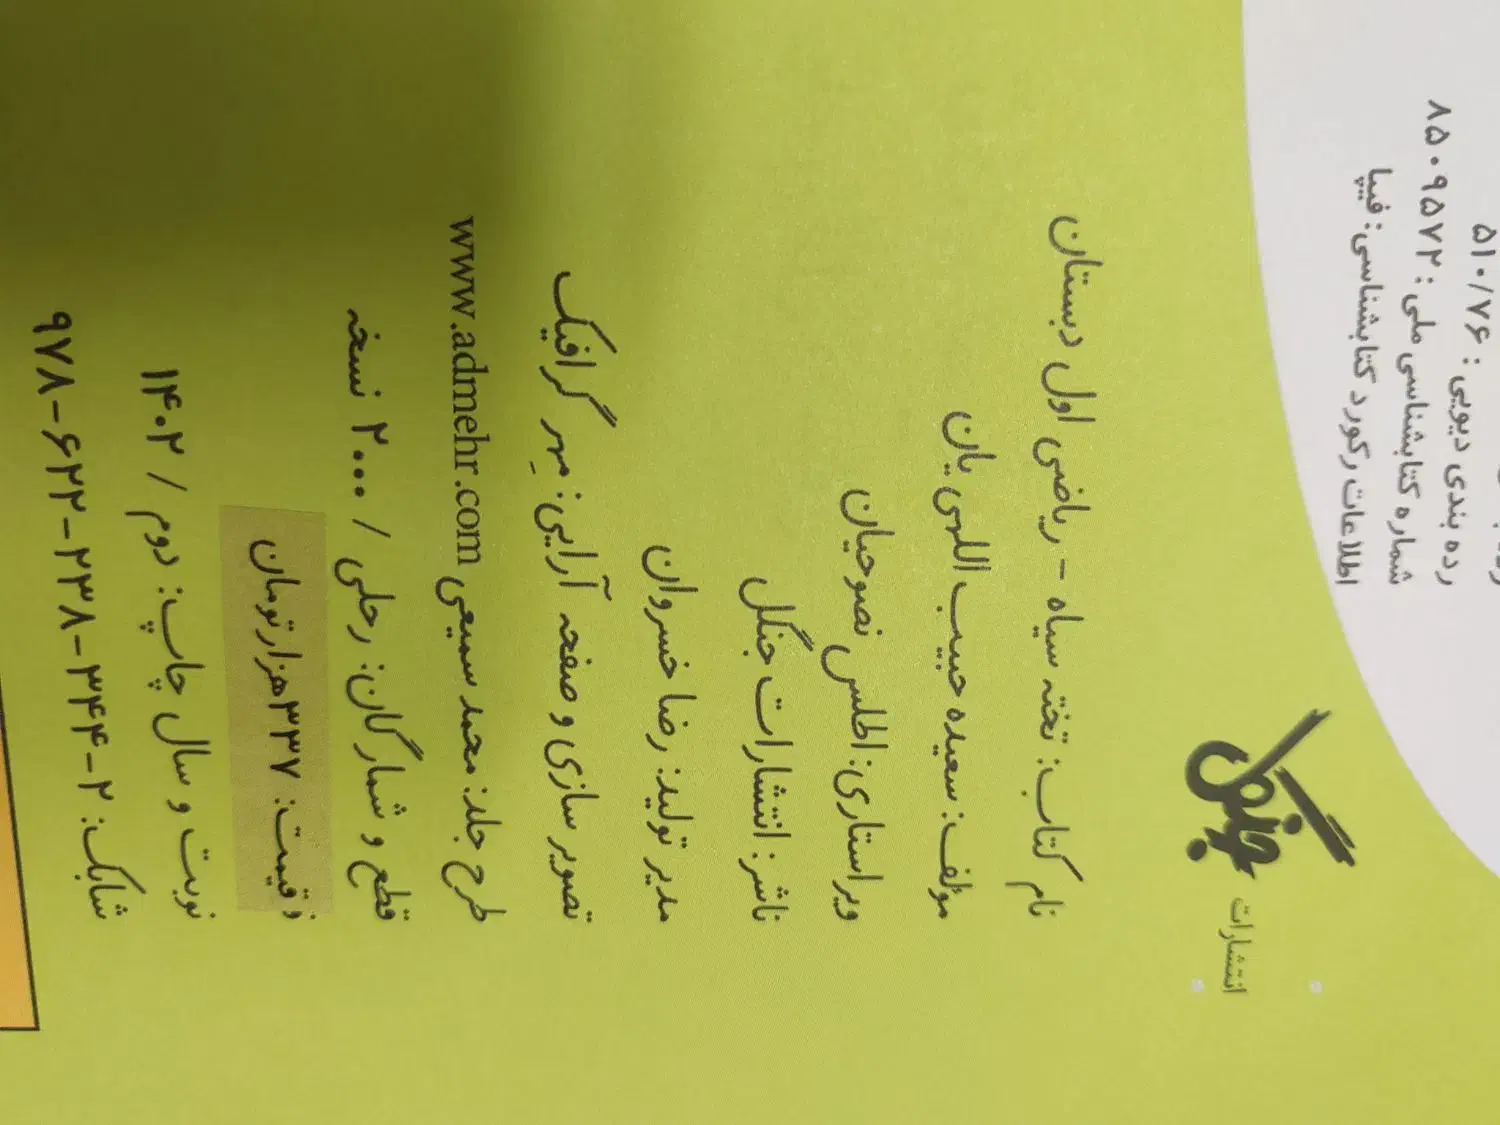 ۵۱۰/۷۶
رده بندی دیویی :
شماره کتابشناسی ملی : ۸۵۰۹۵۷۲
اطلاعات رکورد کتابشناسی: فیپا
انتشارات جنگل
نام کتاب: تخته سیاه - ریاضی اول دبستان
مؤلف: سعیده حبیب اللهی یان
ویراستاری: اطلس نصوحیان
ناشر: انتشارات جنگل
مدیر تولید: رضا خسروان
تصویر سازی و صفحه آرایی: مِهر گرافیک
طرح جلد: محمد سمیعی www.admehr.com
قطع و شمارگان: رحلی / ۲۰۰۰ نسخه
قیمت: ۳۳۷ هزار تومان
نوبت و سال چاپ: دوم / ۱۴۰۲
شابک: ۲-۳۴۴-۲۳۸-۶۲۲-۹۷۸